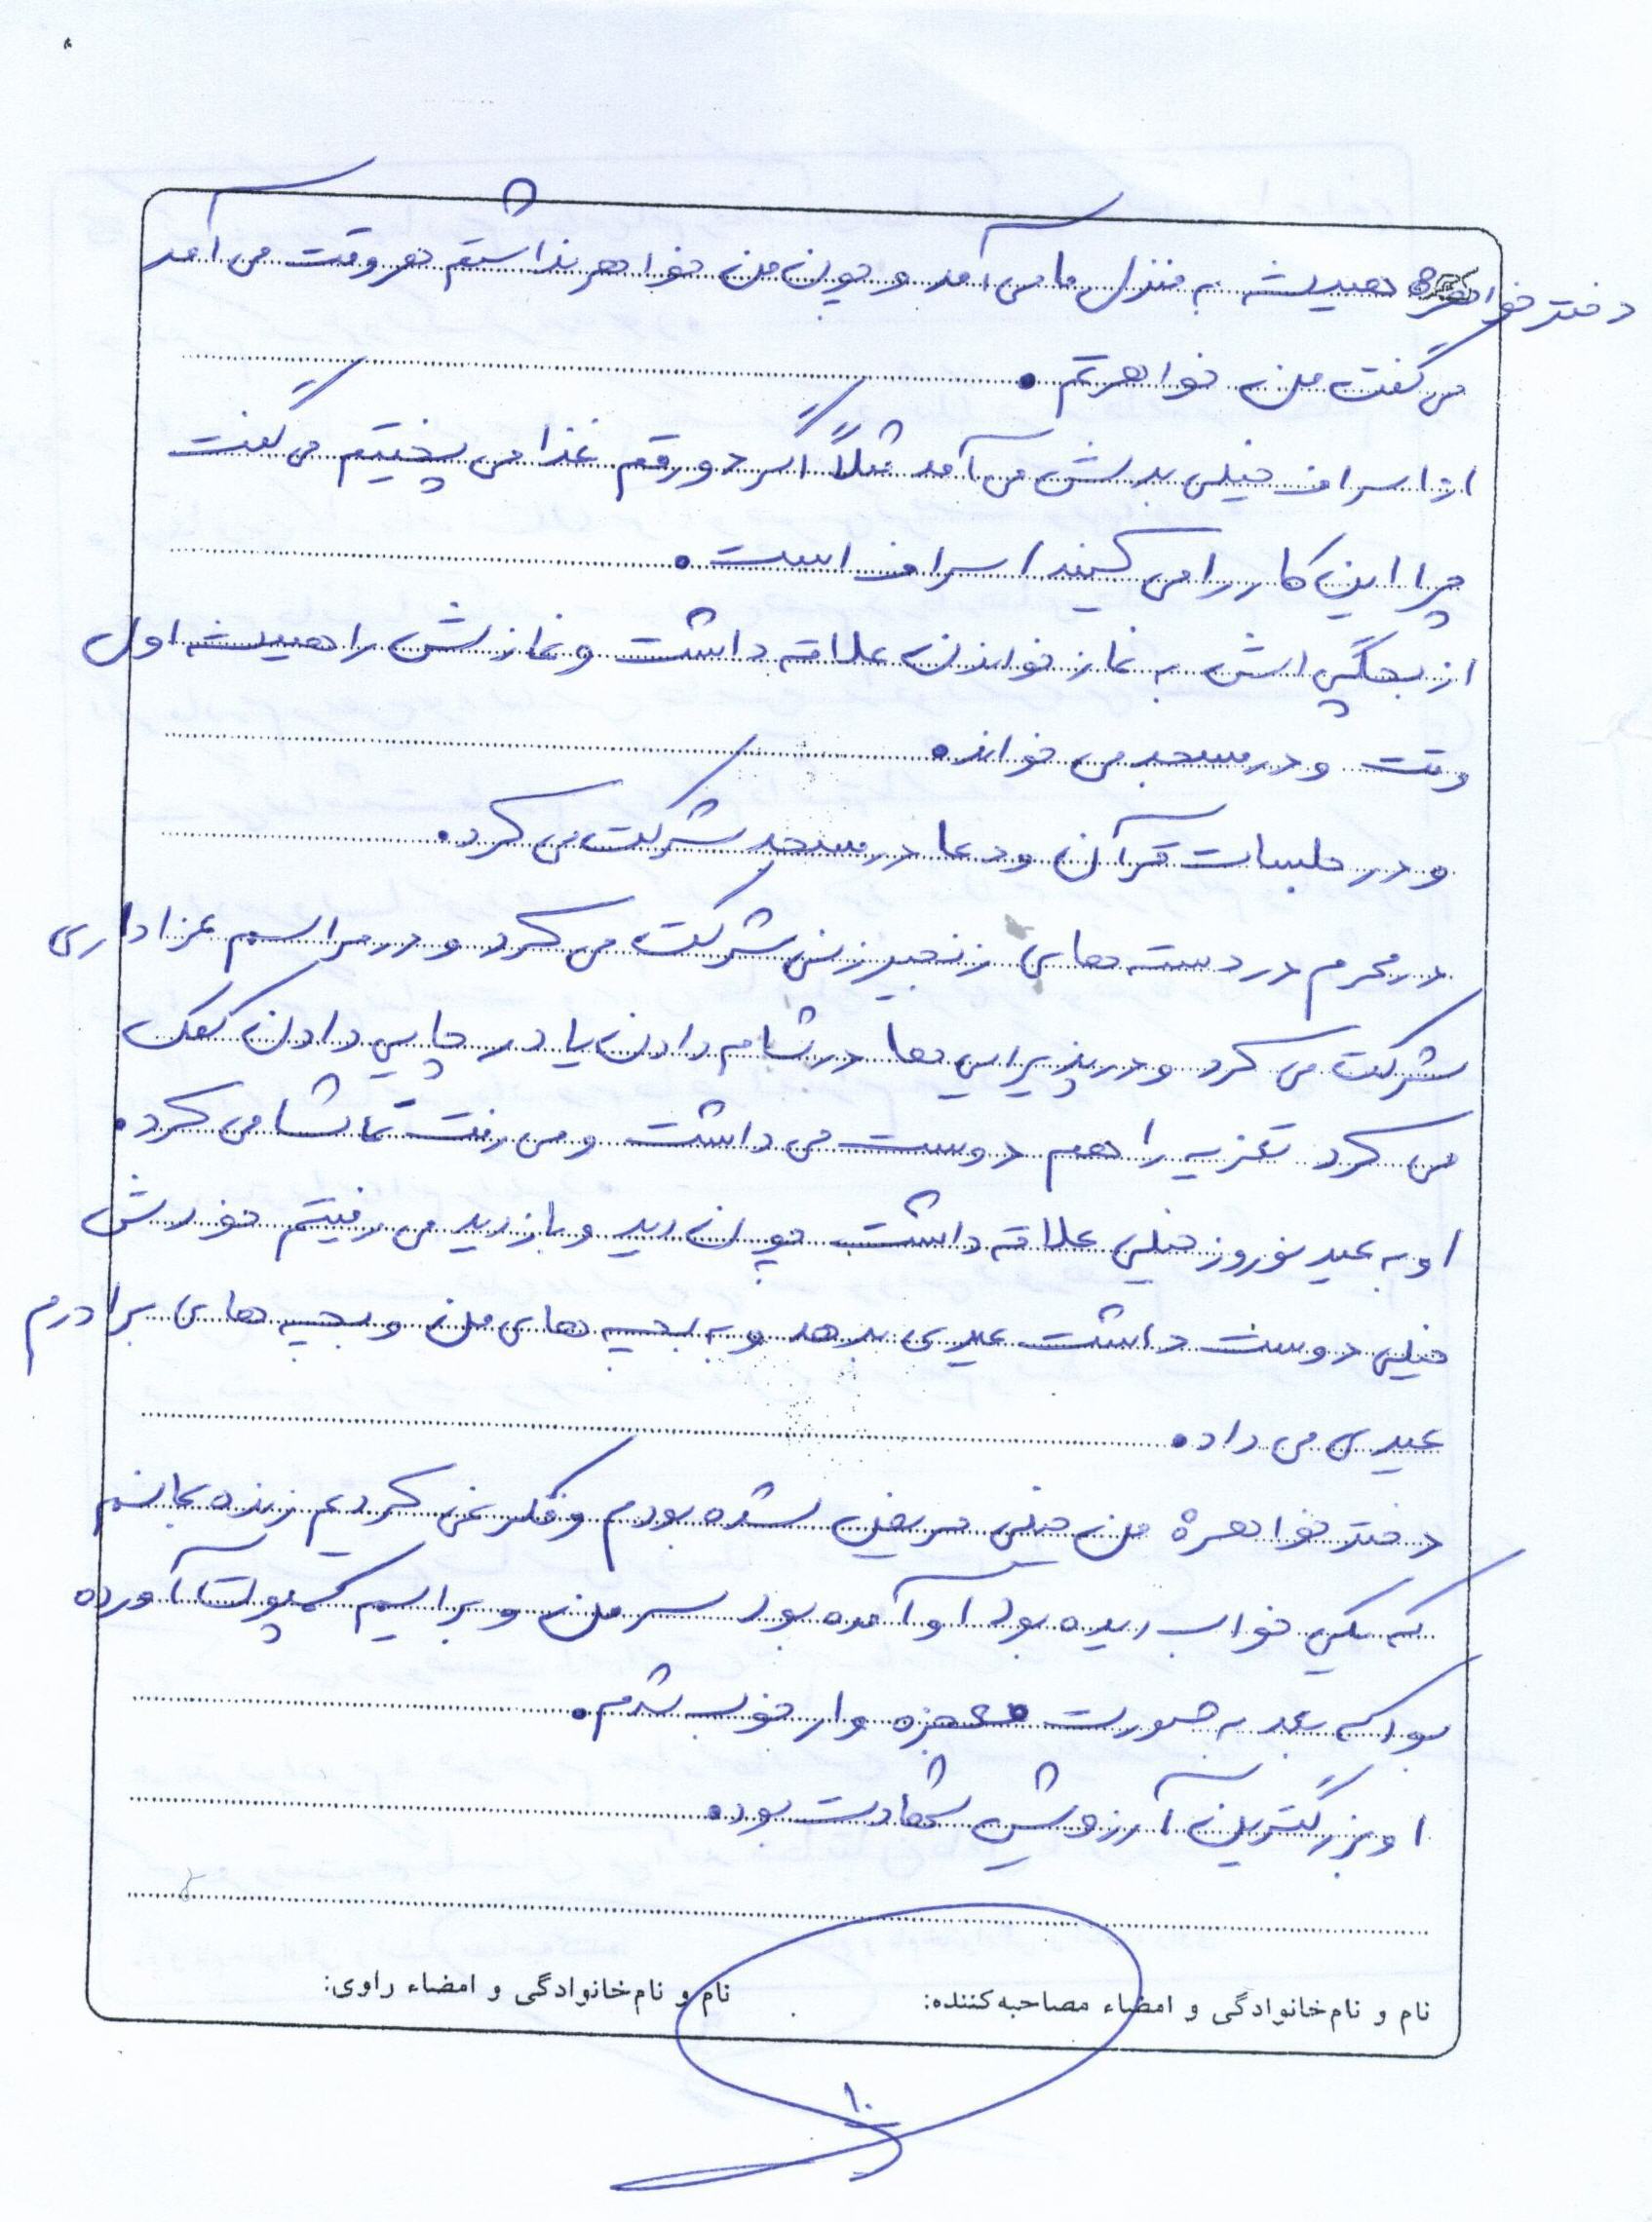 دختر خواهره همیشه به منزل ما می آمد و چون من خواهر نداشتم هر وقت می آمد
می گفت من خواهرتم .
از اسراف خیلی بدش می آمد مثلاً اگر دو رقم غذا می پختیم می گفت
چرا این کار را می کنید اسراف است .
از بچگی اش به نماز خواندن علاقه داشت و نمازش را همیشه اول
وقت و در مسجد می خواند .
و در جلسات قرآن و دعا در مسجد شرکت می کرد .
در محرم در دسته های زنجیرزنی شرکت می کرد و در مراسم عزاداری
شرکت می کرد و در پذیرایی ها در شام دادن یا در چایی دادن کمک
می کرد تعزیه را هم دوست می داشت و می رفت تماشا می کرد .
او به عید نوروز خیلی علاقه داشت چون دید و بازدید می رفتیم خودش
خیلی دوست داشت عیدی بدهد و به بچه های من و بچه های برادرم
عیدی می داد .
دختر خواهره من خیلی مریض شده بودم و فکر نمی کردیم زنده بمانم
که یکی خواب دیده بود او آمده بود سر من و برایم کمپوت آورده
بود که بعد به صورت معجزه وار خوب شدم .
او بزرگترین آرزوش شهادت بود .
نام و نام‌خانوادگی و امضاء مصاحبه‌کننده: نام و نام‌خانوادگی و امضاء راوی:
۱۰